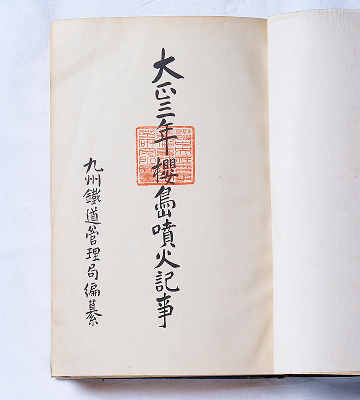 大正三年櫻島噴火記事
九州鐵道管理局編纂